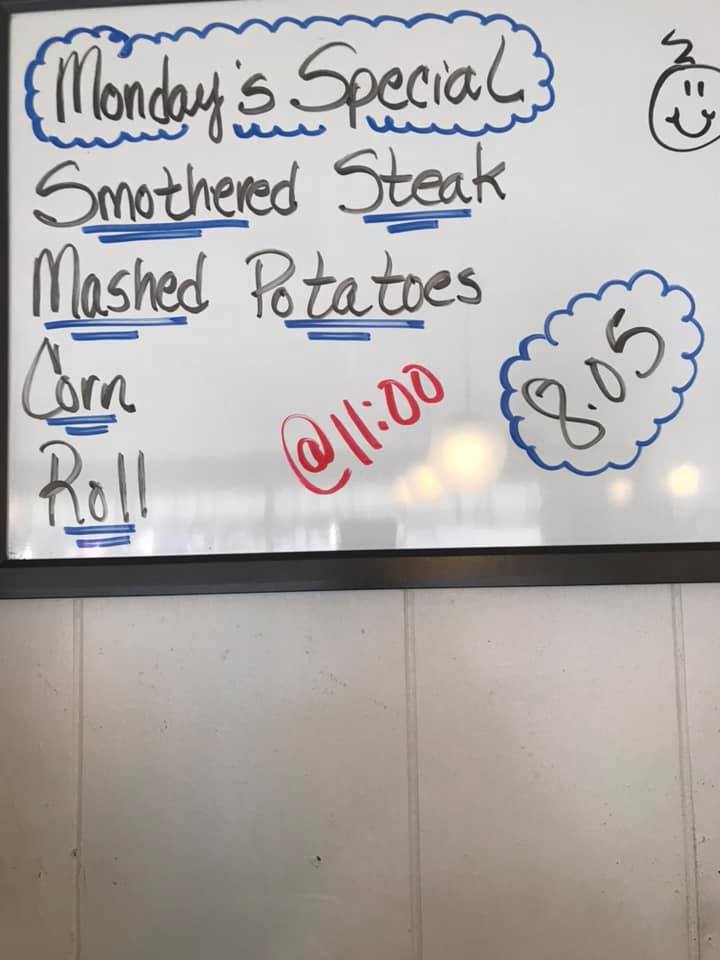 Monday's Special
Smothered Steak
Mashed Potatoes
Corn
Roll
@11:00
8.05